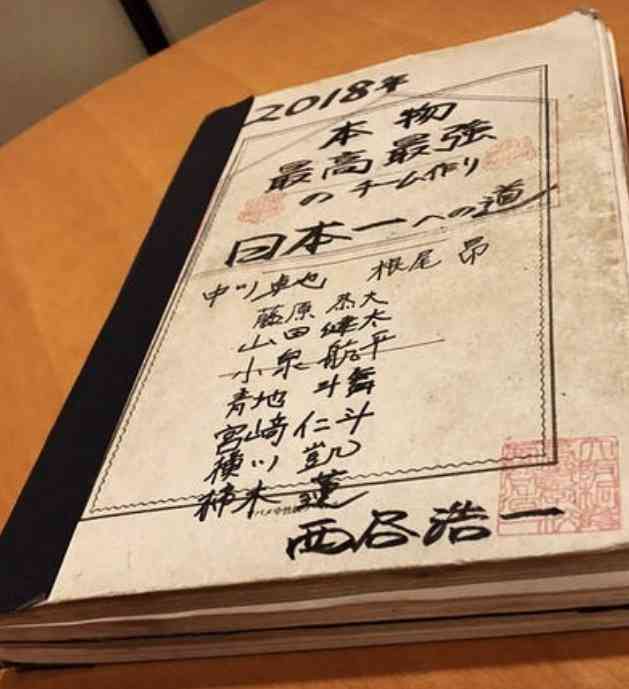 2018年
本物
最高最強
のチーム作り
日本一への道
中川卓也 根尾昂
藤原恭大
山田健太
小泉航平
青地斗舞
宮﨑仁斗
横川凱
柿木蓮
西谷浩一